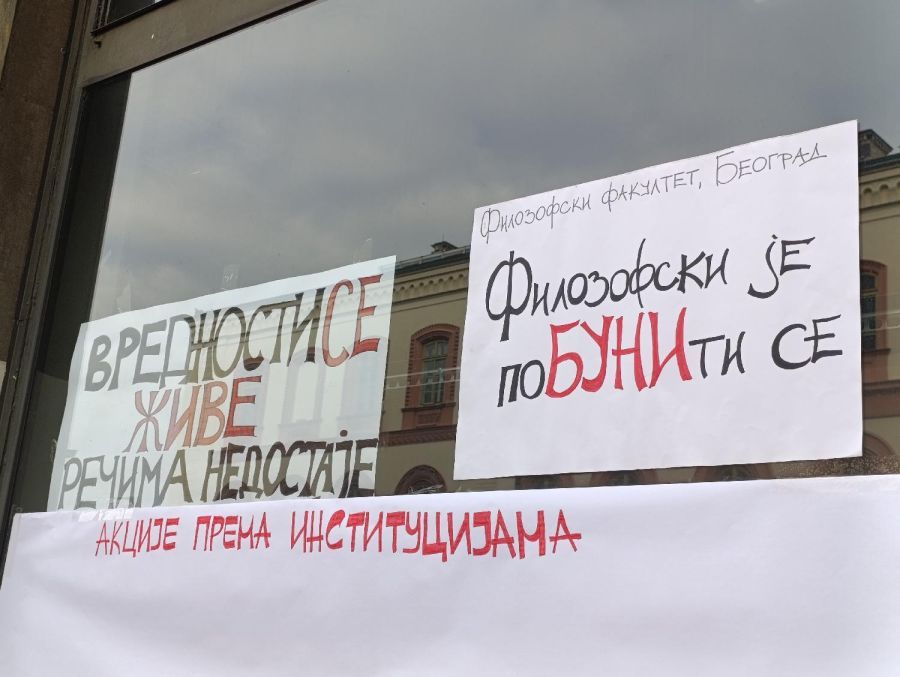 ВРЕДНОСТИ СЕ
ЖИВЕ
РЕЧИМА НЕДОСТАЈЕ
Филозофски факултет, Београд
Филозофски је
поБУНИти се
АКЦИЈЕ ПРЕМА ИНСТИТУЦИЈАМА